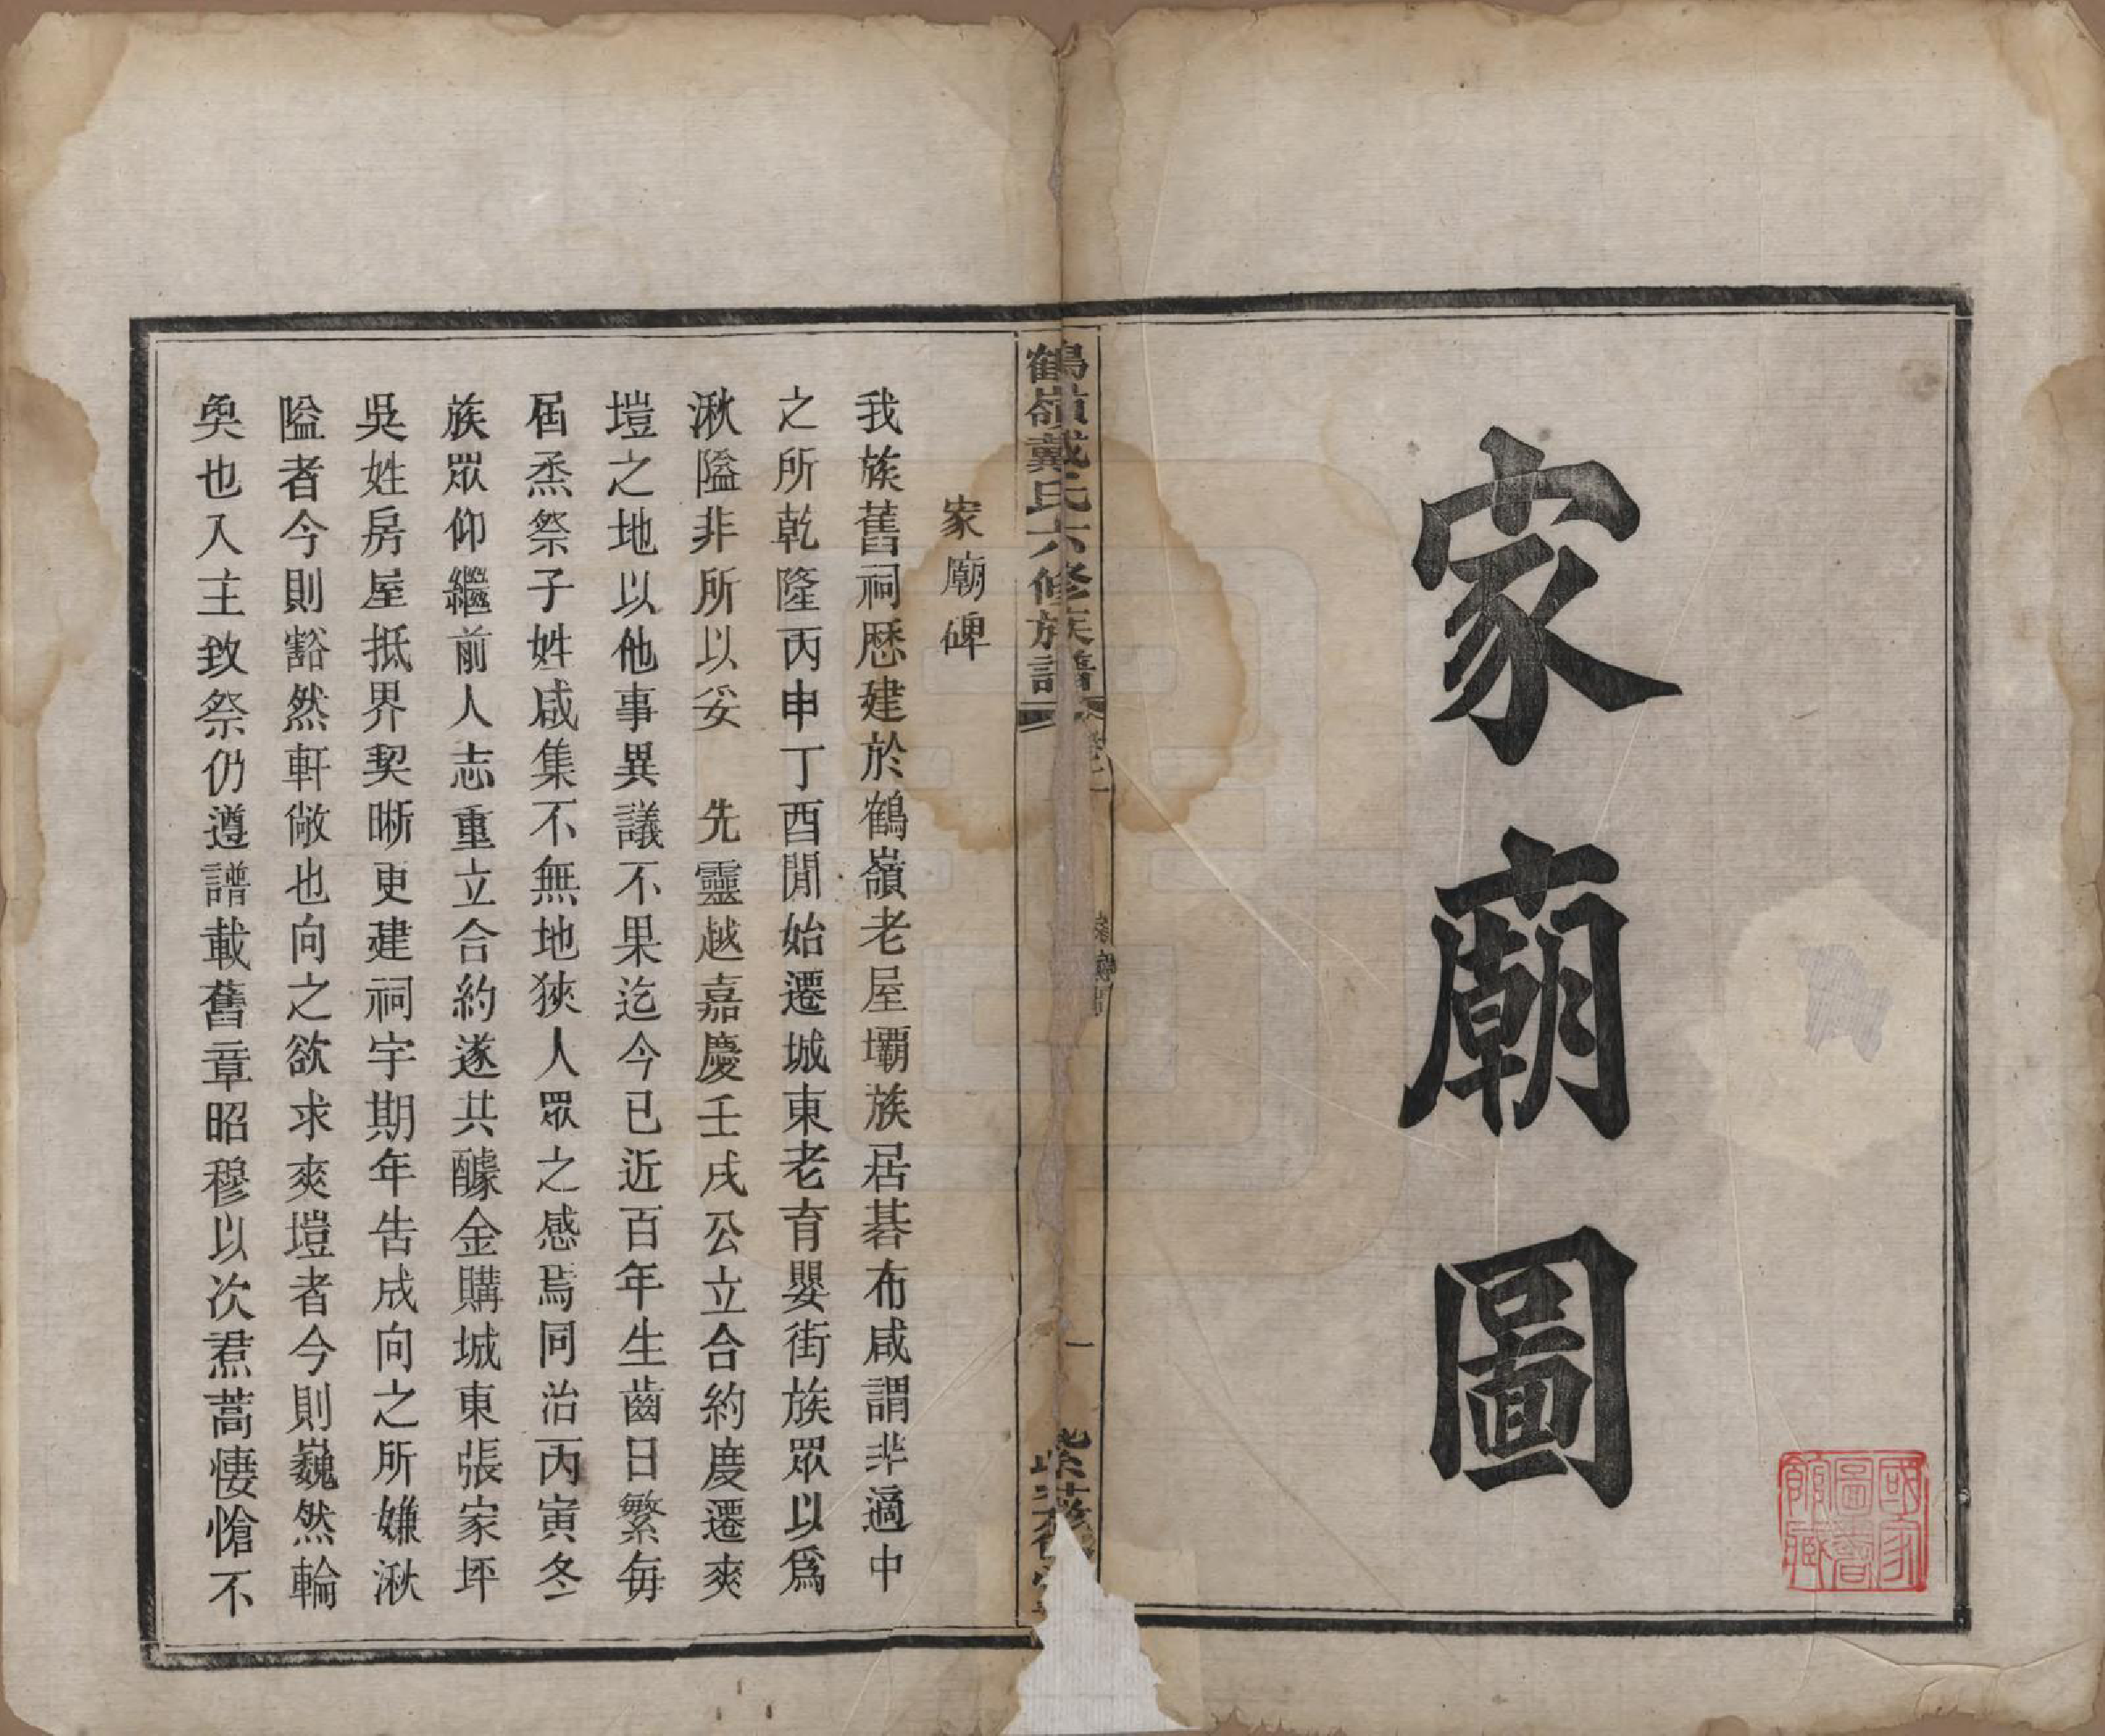 家廟圖
國家圖書館藏
鶴嶺戴氏六修族譜
卷二
家廟
一
家廟碑
我族舊祠歷建於鶴嶺老屋壩族居碁布咸謂非適中
之所乾隆丙申丁酉閒始遷城東老育嬰街族眾以爲
湫隘非所以妥　先靈越嘉慶壬戌公立合約度遷爽
塏之地以他事異議不果迄今已近百年生齒日繁每
屆烝祭子姓咸集不無地狹人眾之感焉同治丙寅冬
族眾仰繼前人志重立合約遂共醵金購城東張家坪
吳姓房屋抵界契晰更建祠宇期年告成向之所嫌湫
隘者今則豁然軒敞也向之欲求爽塏者今則巍然輪
奐也入主致祭仍遵譜載舊章昭穆以次焄蒿悽愴不